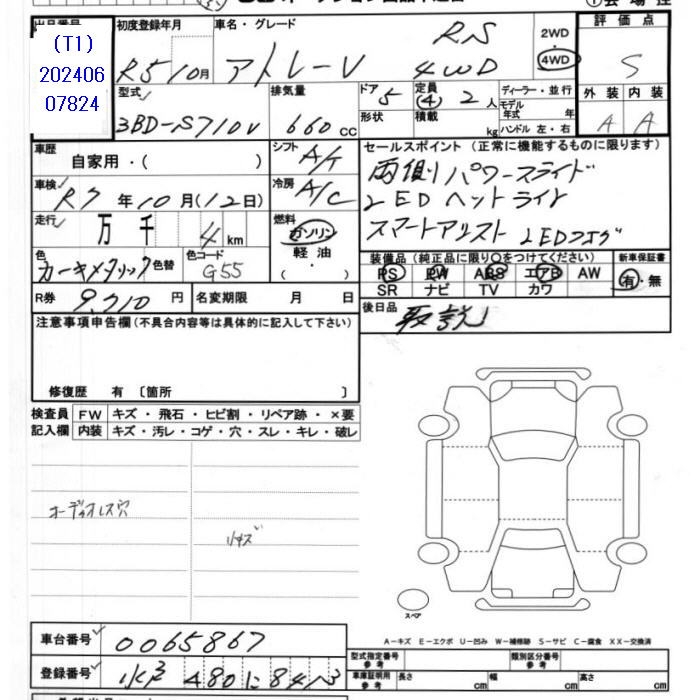 (T1)
202406
07824
初度登録年月
R5 10月
車名・グレード
アトレーV
RS
4WD
2WD
4WD
評価点
S
外装 内装
A A
型式
3BD-S710V
排気量
660 cc
ドア 5
形状
定員 (4) 2 人
積載 kg
ディーラー・並行
モデル年式 年
ハンドル 左・右
車歴
自家用・( )
シフト A/T
車検 R7 年 10 月 (12日)
冷房 A/C
走行 万 千 4 km
燃料
ガソリン
軽油
( ・ )
色 カーキメタリック 色替
色コード G55
R券 9,710 円
名変期限 月 日
セールスポイント (正常に機能するものに限ります)
両側パワースライド
LEDヘッドライト
スマートアシスト LEDフォグ
装備品 (純正品に限り○をつけてください)
PS PW ABS エアB AW
SR ナビ TV カワ
新車保証書
有・無
後日品 取説
注意事項申告欄(不具合内容等は具体的に記入して下さい)
修復歴 有 〔箇所 〕
検査員記入欄
FW キズ・飛石・ヒビ割・リペア跡・×要
内装 キズ・汚レ・コゲ・穴・スレ・キレ・破レ
オーディオレス穴
小キズ
スペア
A-キズ E-エクボ U-凹み W-補修跡 S-サビ C-腐食 XX-交換済
車台番号 0065867
登録番号 水戸 480 に 8413
型式指定番号 参考
類別区分番号 参考
車庫証明用 参考
長さ cm
幅 cm
高さ cm